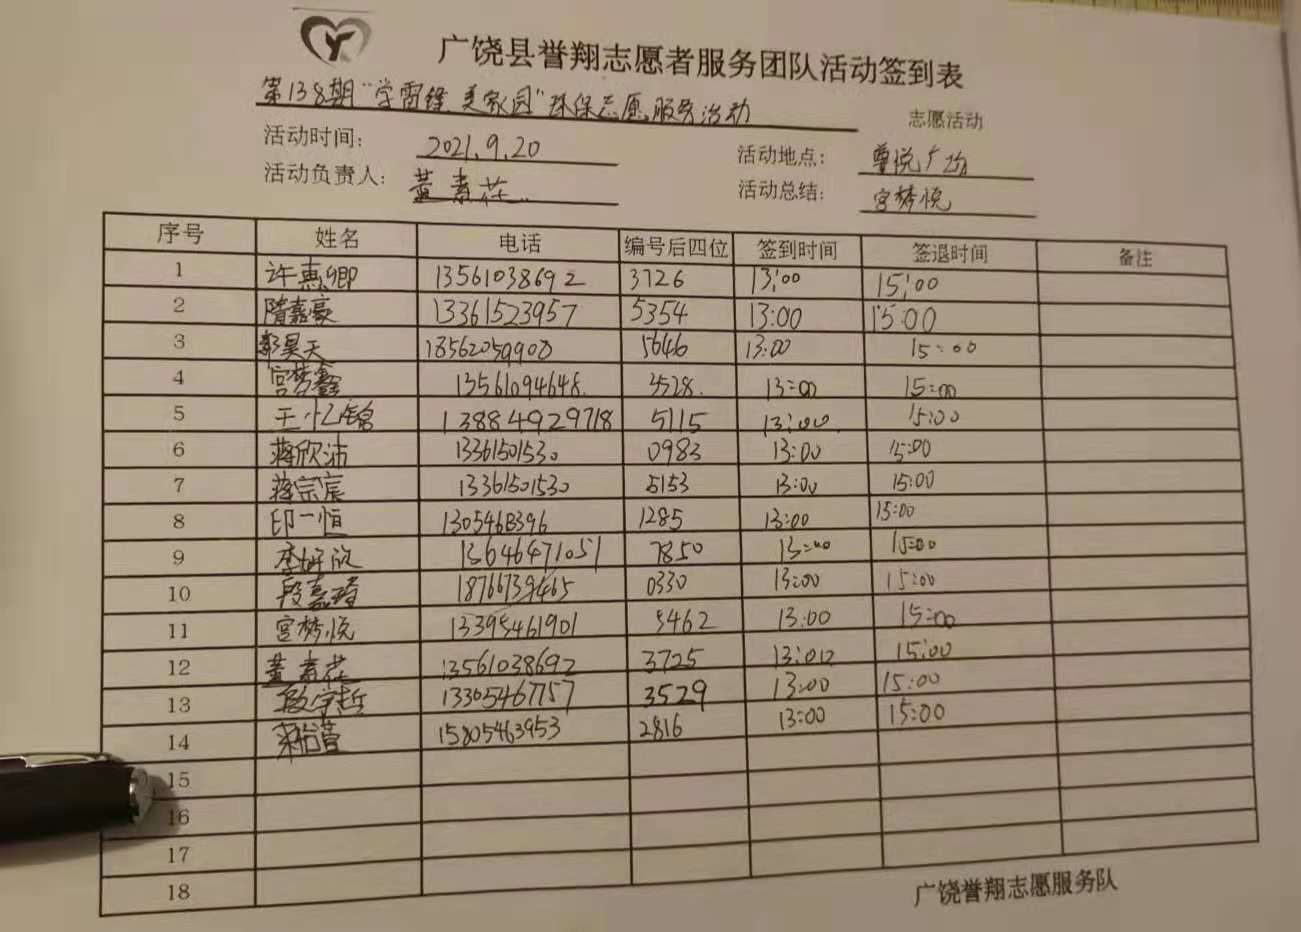 广饶县誉翔志愿者服务团队活动签到表
第138期"学雷锋 美家园"环保志愿服务活动 志愿活动
活动时间: 2021.9.20 活动地点: 尊悦广场
活动负责人: 黄素花 活动总结: 宫梦悦
序号 姓名 电话 编号后四位 签到时间 签退时间 备注
1 许惠卿 13561038692 3726 13:00 15:00
2 隋嘉豪 13361523957 5354 13:00 15:00
3 郭昊天 18562059908 5646 13:00 15:00
4 宫梦鑫 13561094648 3528 13:00 15:00
5 王忆锦 13884929718 5115 13:00 15:00
6 蒋欣沛 13361501530 0983 13:00 15:00
7 蒋宗宸 13361501530 5153 13:00 15:00
8 印一恒 1285 13:00 15:00
9 李妍欣 13646471051 7850 13:00 15:00
10 段嘉琦 18766739465 0330 13:00 15:00
11 宫梦悦 13395461901 5462 13:00 15:00
12 黄素花 13561038692 3725 13:00 15:00
13 13305467757 3529 13:00 15:00
14 15805463953 2816 13:00 15:00
15
16
17
18
广饶誉翔志愿服务队